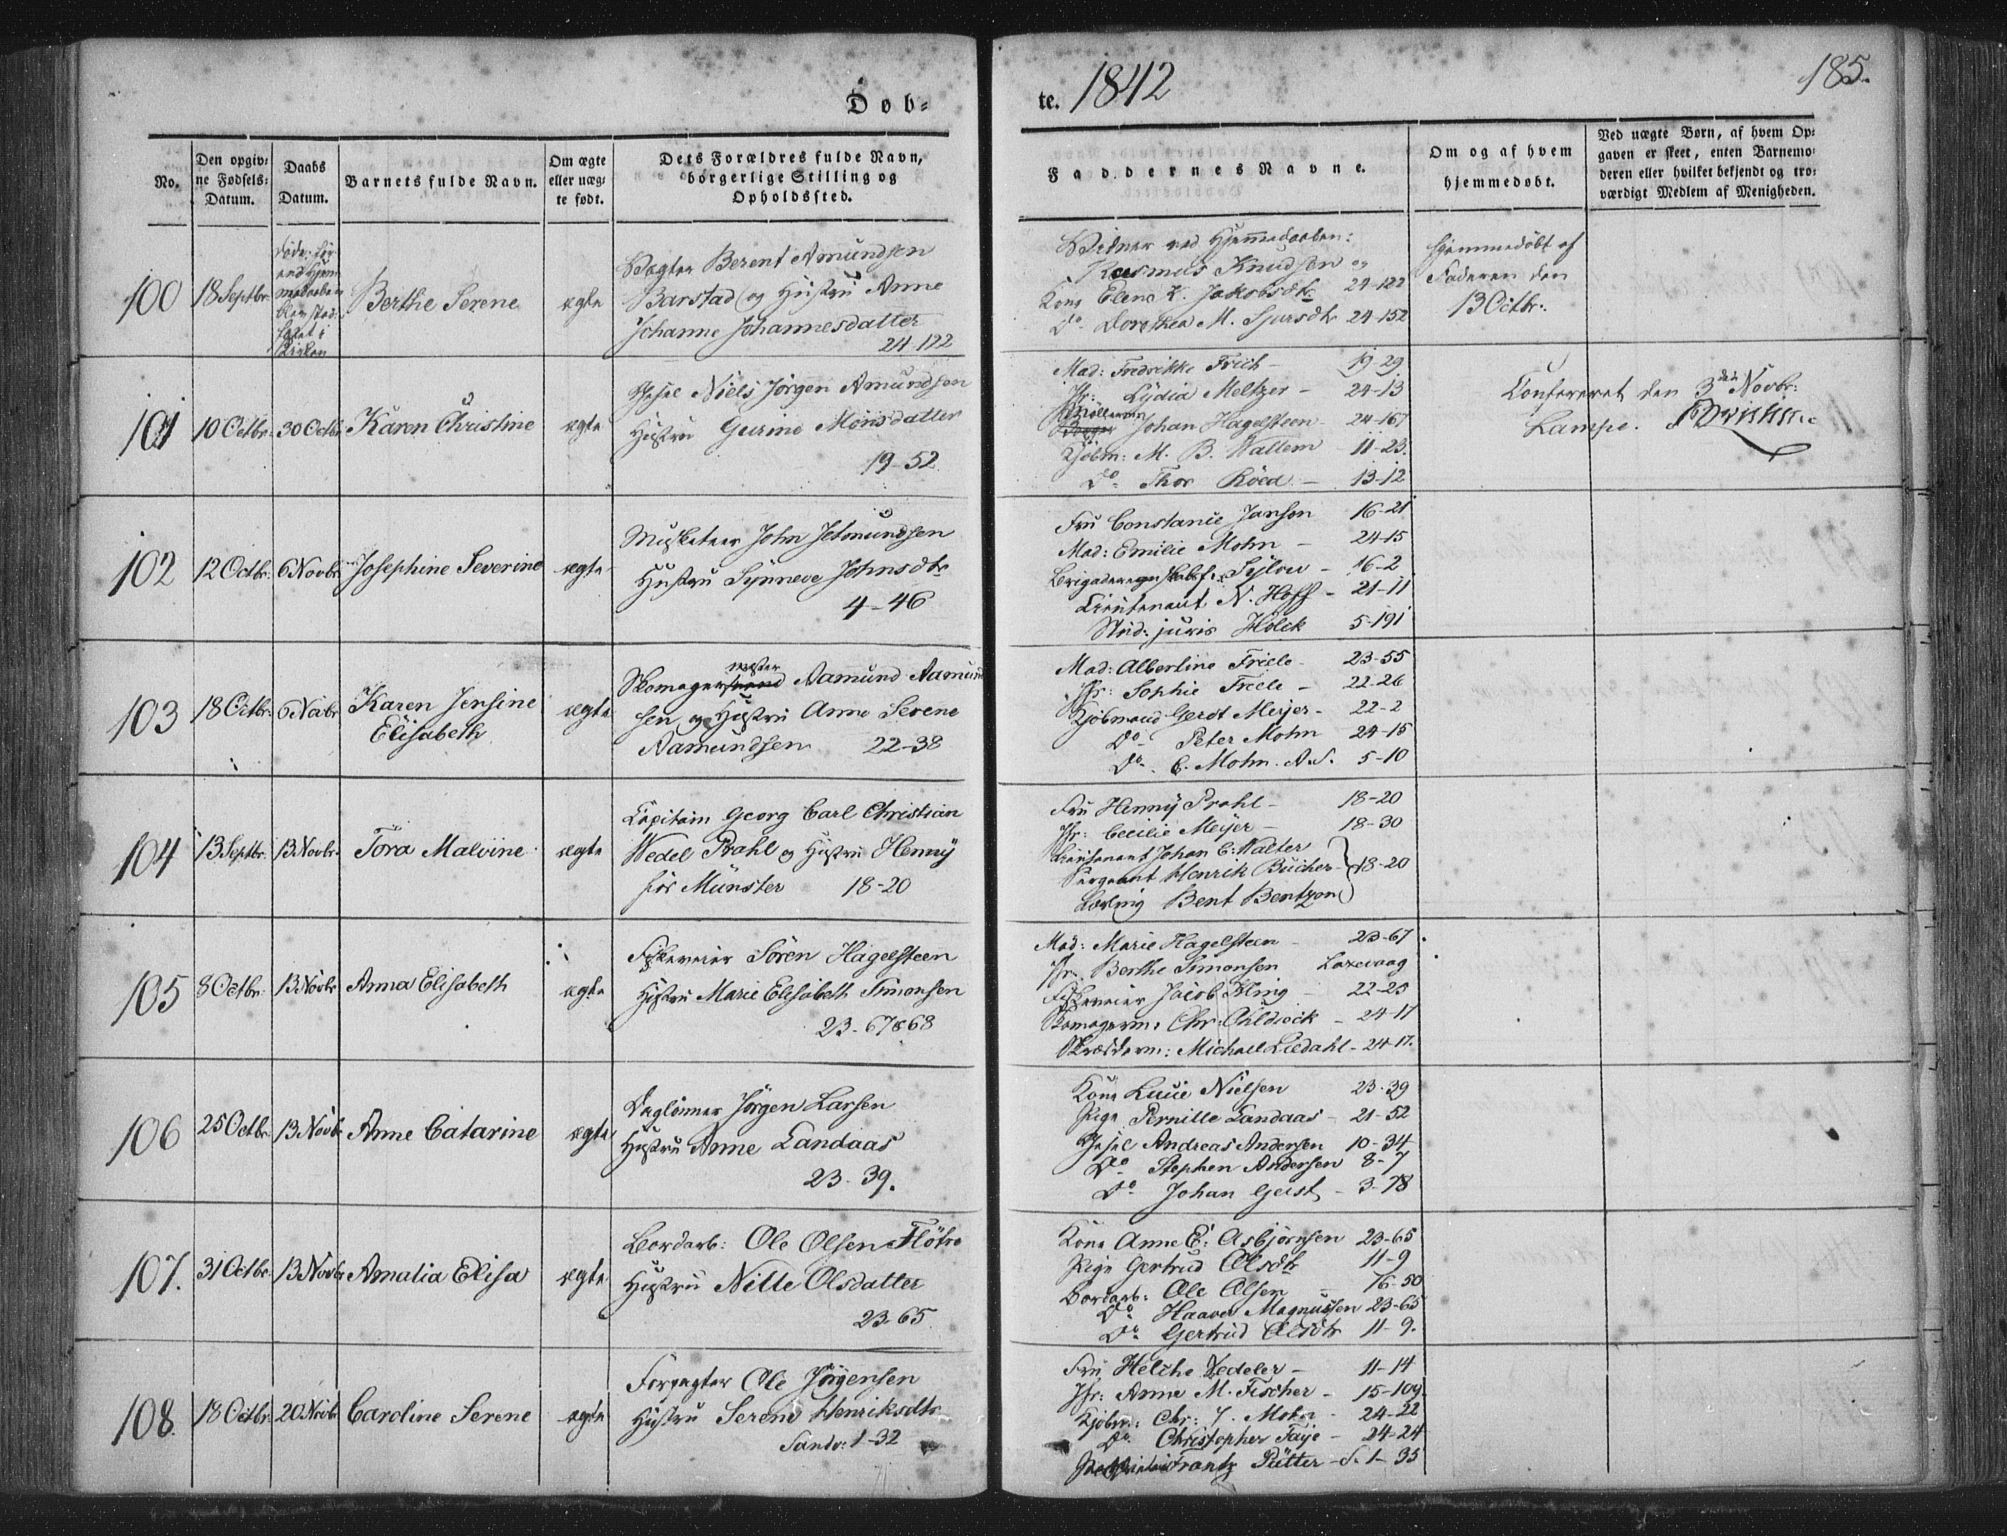 Døb-
te. 1842
185.
No.
Den opgiv-
ne Fødsels-
Datum.
Daabs
Datum.
Barnets fulde Navn.
Om ægte
eller uæg-
te født.
Dets Forældres fulde Navn,
borgerlige Stilling og
Opholdssted.
Faddernes Navne.
Om og af hvem
hjemmedøbt.
Ved uægte Børn, af hvem Op-
gaven er skeet, enten Barnemo-
deren eller hvilket bekjendt og tro-
værdigt Medlem af Menigheden.
100
18 Septbr.
Berthe Serene
ægte
Vægter Berent Amundsen
Barstad og Hustru Anne
Johanne Johannesdatter
24-122
Vidner ved Hjemmedaaben:
Rasmus Knudsen og
Kone Elene K. Jakobsdtr 24-122
Do Dorothea M. Sjursdtr 24-152
Hjemmedøbt af
Faderen den
13 Octbr.
101
10 Octbr.
30 Octbr
Karen Christine
ægte
Gesel Niels Jörgen Amundsen
Hustru Gurine Monsdatter
19-52
Mad: Fredrikke Frich - 19-29
Jfr: Lydia Meltzer - 24-13
Johan Hagelsteen - 24-167
Kjöbm: M. B. Wallem - 11-23.
Do Thor Röed - 13-12
Confereret den 3die Novbr:
Lampe.
102
12 Octbr.
6 Novbr
Josephine Severine
ægte
Musketeer John Jetmundsen
Hustru Synneve Johnsdtr
4-46
Fru Constance Janson 16-21
Mad: Emilie Mohn - 24-15
Sylow - 16-2
Lieutenant N. Hoff - 21-11
Stud: juris Holck 5-191
103
18 Octbr.
6 Novbr
Karen Jensine
Elisabeth
ægte
mester
Skomager Aamund Aamund
sen og Hustru Anne Serene
Aamundsen 22-38
Mad: Albertine Friele - 23-55
Jfr: Sophie Friele - 22-26
Kjöbmand Gerdt Meyer - 22-2
Do Peter Mohn 24-15
Do C. Mohn. A.S. 5-10
104
13 Septbr.
13 Novbr.
Tora Malvine
ægte
Capitain Georg Carl Christian
Wedel Prahl og Hustru Henny
för Münster 18-20
Fru Henny Prahl - 18-20
Jfr: Cecilie Meyer - 18-30
Lieutenant Johan C: Walter
Sergeant Henrik Bücher - 18-20
Bent Bentzen
105
8 Octbr.
13 Novbr
Anna Elisabeth
ægte
Sören Hagelsteen
Hustru Marie Elisabeth Simonsen
23-67&68
Mad: Marie Hagelsteen - 23-67
Jfr. Berthe Simonsen Laxevaag
Jacob Kling - 22-25
Skomagerm: Chr: - 24-17
Skrædderm: Michael Liedahl - 24-17.
106
25 Octbr.
13 Novbr
Anne Catarine
ægte
Daglönner Jörgen Larsen
Hustru Anne Landaas
23-39.
Kone Lucie Nielsen 23-39
Pige Pernille Landaas - 21-52
Gesel Andreas Andersen 10-34
Do Stephen Andersen 8-7
Do Johan Geist - 3-78
107.
31 Octbr
13 Novbr
Amalia Elisa
ægte
Bordarb: Ole Olsen
Hustru Nille Olsdatter
23-65
Kone Anne E: Asbjörnsen 23-65
Pige Gertrud Olsdtr 11-9
Bordarb: Ole Olsen - 16-50
Do Haaver Magnussen 23-65
Do Gertrud Olsdtr 11-9.
108.
18 Octbr.
20 Novbr
Caroline Serene
ægte
Forpagter Ole Jörgensen
Hustru Serene Henriksdtr
Sandv: 1-32
Fru Helche Zedeler - 11-14
Jfr: Anne M. Fischer - 15-109
Kjöbm: Chr: J. Mohn - 24-22
Do Christopher Faye - 24-24
Frantz Pütter - S. 1-35